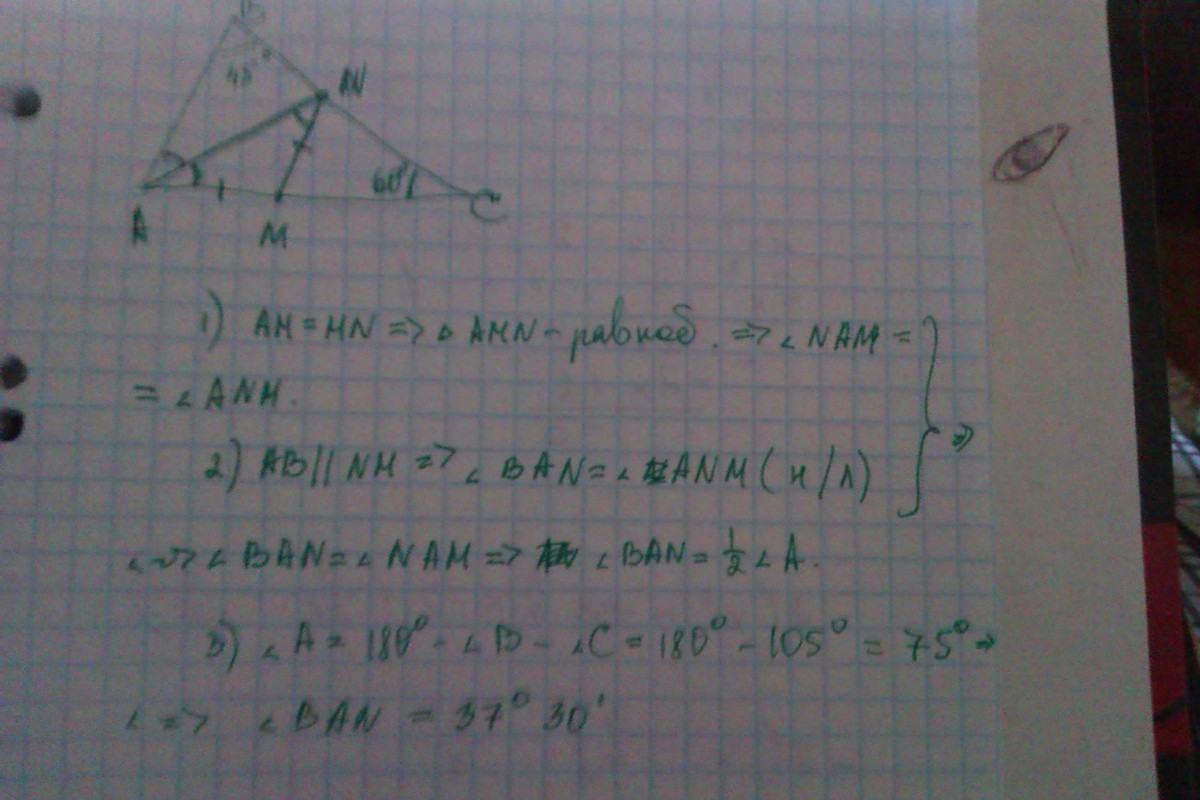 B
45°
N
60°
A
M
C
1) AM = MN => △ AMN - равноб. => ∠ NAM =
= ∠ ANM.
2) AB || NM => ∠ BAN = ∠ ANM ( н/л )
=> ∠ BAN = ∠ NAM => ∠ BAN = 1/2 ∠ A.
3) ∠ A = 180° - ∠ B - ∠ C = 180° - 105° = 75° =>
=> ∠ BAN = 37° 30'